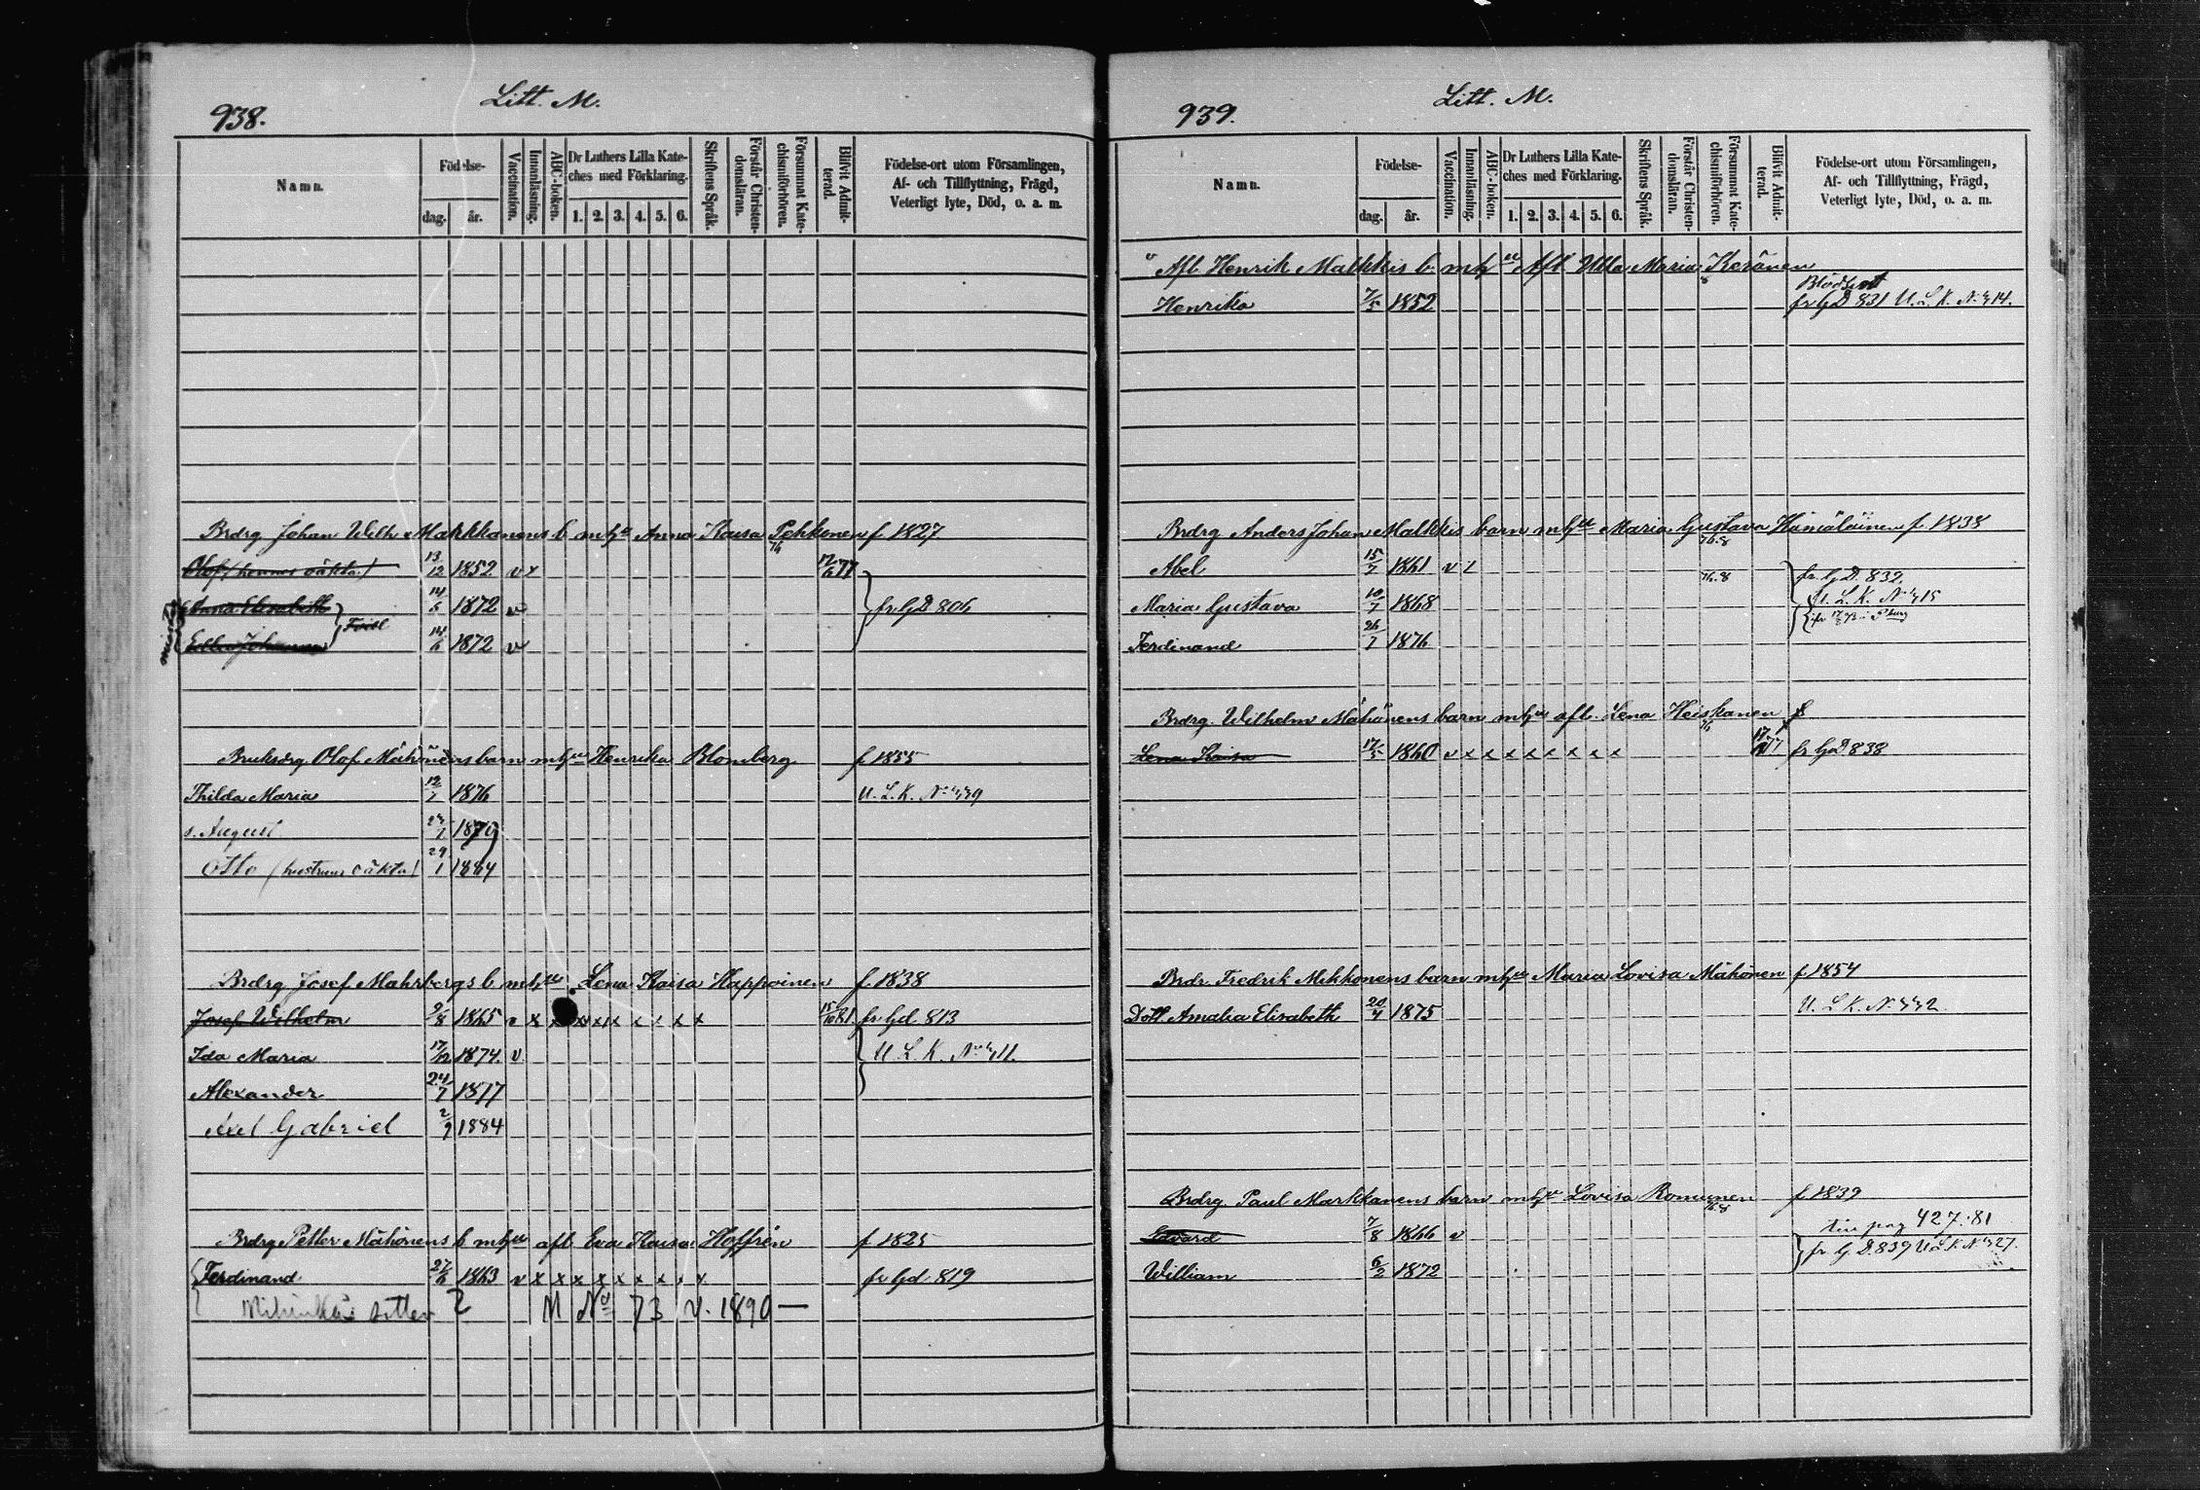 938. Litt. M.
Namn. Födelse- dag. år. Vaccination. Innanläsning. ABC-boken. Dr Luthers Lilla Kateches med Förklaring. 1. 2. 3. 4. 5. 6. Skriftens Språk. Förstår Christendomsläran. Försummat Katechismiförhören. Blifvit Admitterad. Födelse-ort utom Församlingen, Af- och Tillflyttning, Frägd, Veterligt lyte, Död, o. a. m.
Brdrg Johan Wilh. Makkonens b. mhu Anna Kaisa Pehkonen f 1827
Olof (hennes oäkta) 13/12 1852 v x 17/6 77
Anna Elisabeth 14/6 1872 v fr GD 806
Johanna 14/6 1872 v
Bruksdrg Olof Mähönens barn mhu Henrika Blomberg f 1855
Thilda Maria 12/7 1876 U. L. K. No 439
s. August 1879
Otto (hustruns oäkta) 29/1 1884
Brdrg Josef Mahrbergs b. mhu Lena Kaisa Happoinen f 1838
Josef Wilhelm 9/8 1865 v x x x x x x x x x 15/10 81. fr Gd 813
Ida Maria 17/12 1874. v U L K. No 411.
Alexander 24/7 1877
Axel Gabriel 2/9 1884
Brdrg Petter Mähönens b mhu afl Eva Kaisa Hoffrén f 1825
Ferdinand 27/6 1863 v x x x x x x x x x fr Gd 819
M No 73 v. 1890 —
939. Litt. M.
Namn. Födelse- dag. år. Vaccination. Innanläsning. ABC-boken. Dr Luthers Lilla Kateches med Förklaring. 1. 2. 3. 4. 5. 6. Skriftens Språk. Förstår Christendomsläran. Försummat Katechismiförhören. Blifvit Admitterad. Födelse-ort utom Församlingen, Af- och Tillflyttning, Frägd, Veterligt lyte, Död, o. a. m.
" Afl. Henrik Malkkis b. mhu Afl Ulla Maria Keränen
Henrika 7/5 1852 fr GD 831 U. L. K. No 414.
Brdrg Anders Johan Malkkis barn mhu Maria Gustava Hämäläinen f. 1838
Abel 15/7 1861 v 76.8 fr. GD. 832.
Maria Gustava 10/7 1868 U. L. K. No 415
Ferdinand 26/7 1876
Brdrg. Wilhelm Mähönens barn mhu afl. Lena Heiskanen f
Lena Kaisa 17/5 1860 v x x x x x x x x 77 fr Gd 838
Brdr. Fredrik Mikkonens barn mhu Maria Lovisa Mähönen f 1854
Dott. Amalia Elisabeth 20/4 1875 U. L K. No 442
Brdrg. Paul Markkanens barn mhu Lovisa Romunen f 1839
Edvard 7/8 1866 v pag 427.81
fr G D. 839 U L K No 427.
William 6/2 1872